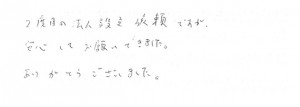 2度目の法人設立依頼ですが、
安心してお願いできました。
ありがとうございました。